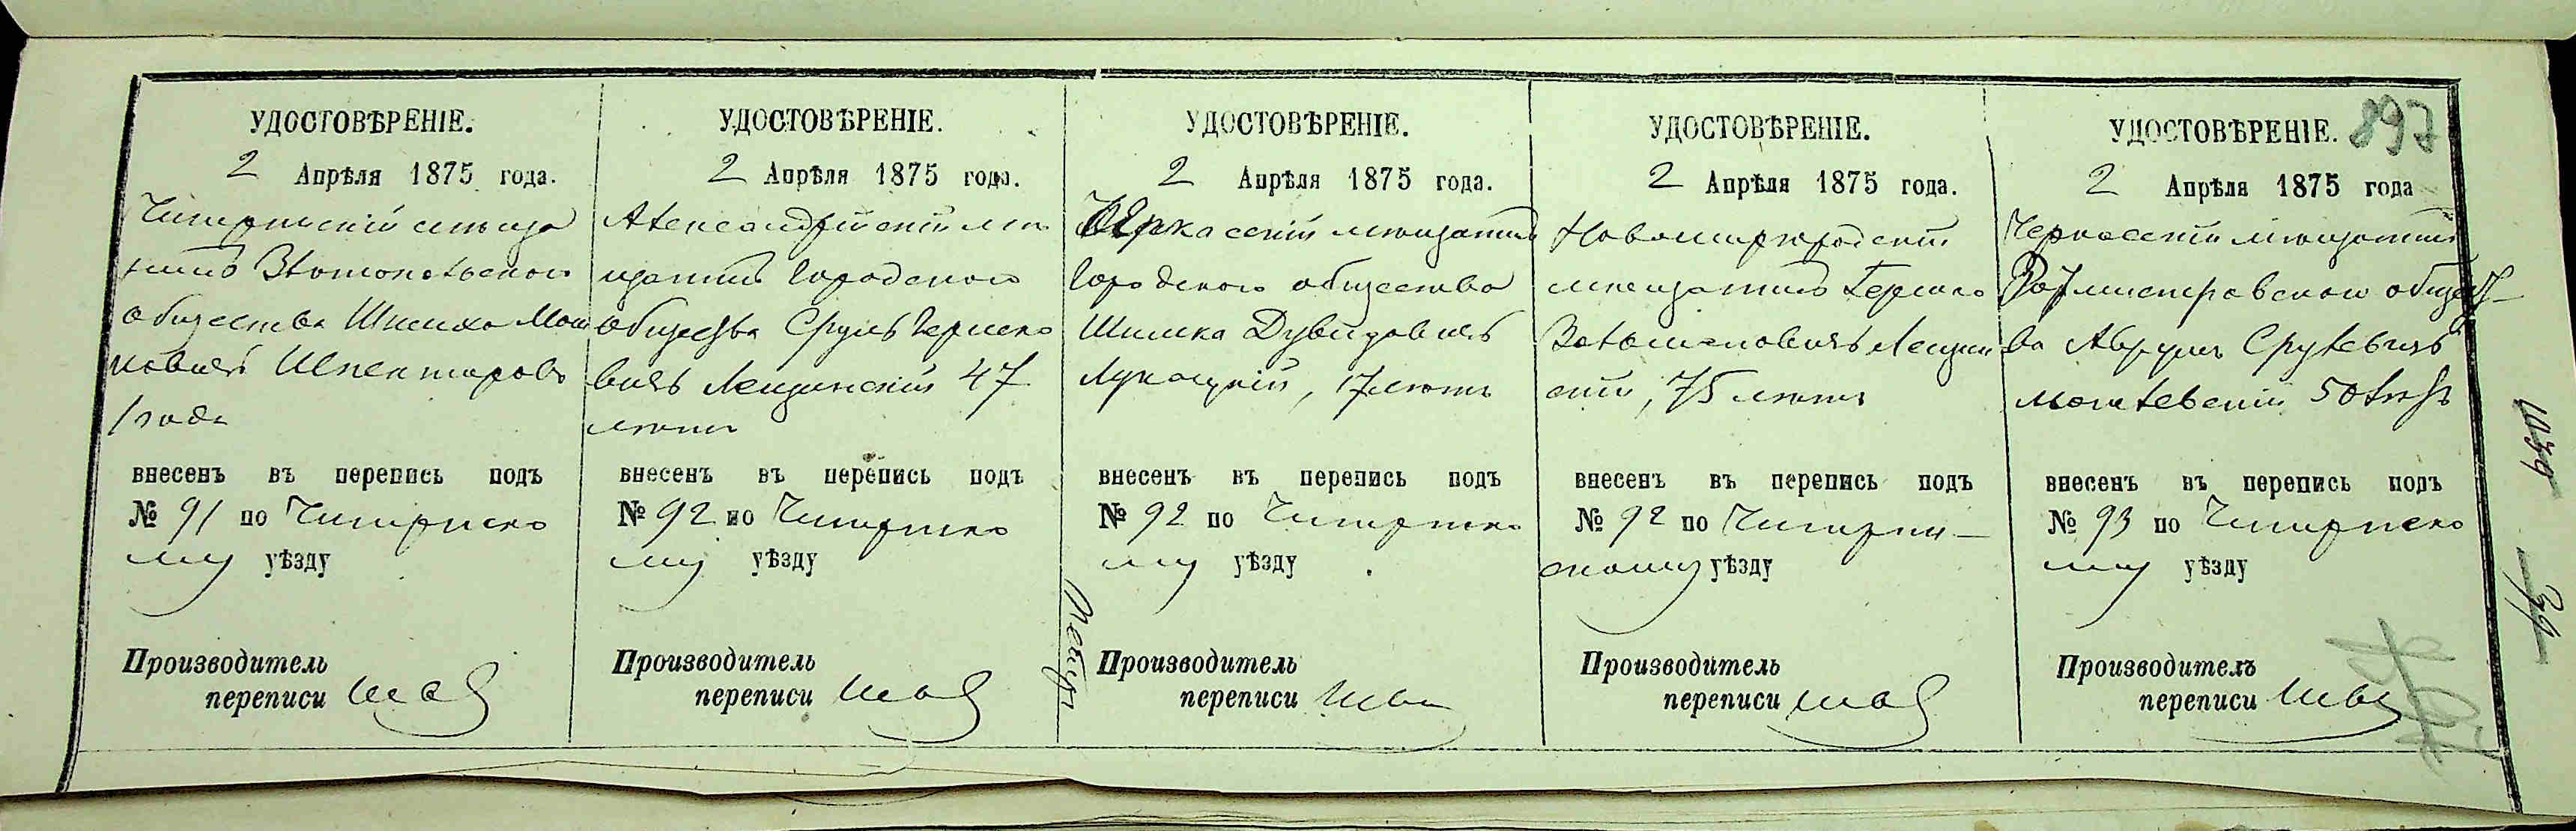 УДОСТОВѢРЕНІЕ.
2 Апрѣля 1875 года.
Чигиринскій мѣща
нинъ Златопольскаго
общества Шмилхо Мош
ковичъ Шпекторовъ
1 года
внесенъ въ перепись подъ
№ 91 по Чигиринско
му уѣзду
Производитель
переписи
УДОСТОВѢРЕНІЕ.
2 Апрѣля 1875 года.
Александрійскій мѣ
щанинъ Городскаго
общества Сруль Гершко
вичъ Лещинскій 47
лѣтъ
внесенъ въ перепись подъ
№ 92 по Чигиринско
му уѣзду
Производитель
переписи
УДОСТОВѢРЕНІЕ.
2 Апрѣля 1875 года.
Черкасскій мѣщанинъ
Городскаго общества
Шимка Дувидовичъ
Лукацкій, 17 лѣтъ
внесенъ въ перепись подъ
№ 92 по Чигиринско
му уѣзду
Производитель
переписи
УДОСТОВѢРЕНІЕ.
2 Апрѣля 1875 года.
Новомиргородскій
мѣщанинъ Гершко
Лещин
скій, 75 лѣтъ
внесенъ въ перепись подъ
№ 92 по Чигирин-
скому уѣзду
Производитель
переписи
897
УДОСТОВѢРЕНІЕ.
2 Апрѣля 1875 года
Черкасскій мѣщанинъ
Ротмистровскаго общест-
ва Аврумъ Срулевичъ
Могилевскій 50 лѣтъ
внесенъ въ перепись подъ
№ 93 по Чигиринско
му уѣзду
Производитель
переписи